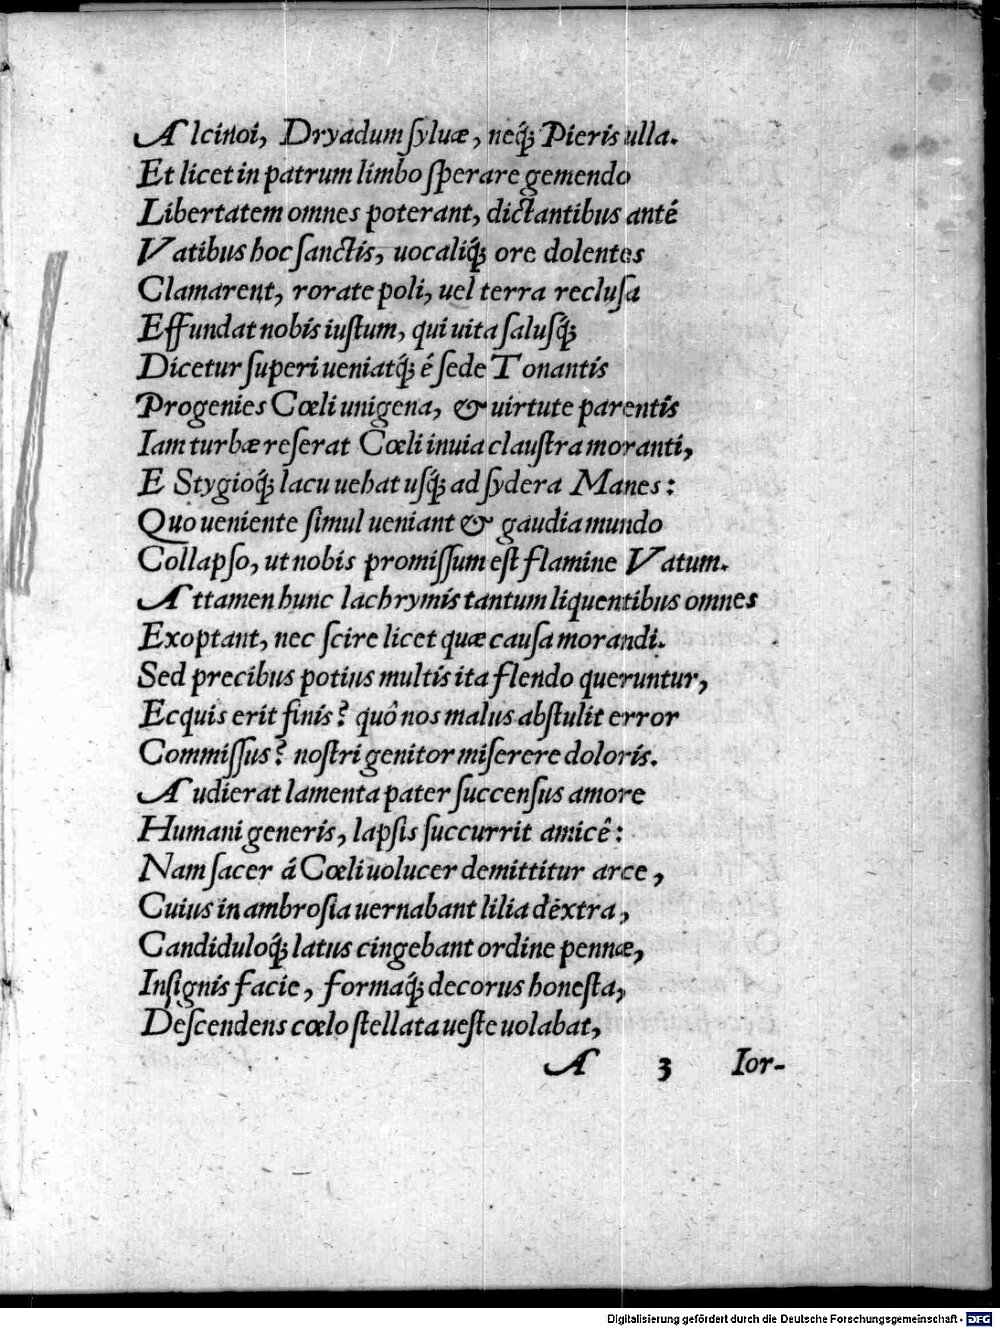 Alcinoi, Dryadum ſyluæ, neq́; Pieris ulla.
Et licet in patrum limbo ſperare gemendo
Libertatem omnes poterant, dictantibus anté
Vatibus hoc ſanctis, uocaliq́; ore dolentes
Clamarent, rorate poli, uel terra recluſa
Effundat nobis iuſtum, qui uita ſalusq́;
Dicetur ſuperi ueniatq́; é ſede Tonantis
Progenies Cœli unigena, & uirtute parentis
Iam turbæ reſerat Cœli inuia clauſtra moranti,
E Stygioq́; lacu uehat uſq́; ad ſydera Manes:
Quo ueniente ſimul ueniant & gaudia mundo
Collapſo, ut nobis promiſſum eſt flamine Vatum.
Attamen hunc lachrymis tantum liquentibus omnes
Exoptant, nec ſcire licet quæ cauſa morandi.
Sed precibus potius multis ita flendo queruntur,
Ecquis erit finis? quô nos malus abſtulit error
Commiſſus? noſtri genitor miſerere doloris.
Audierat lamenta pater ſuccenſus amore
Humani generis, lapſis ſuccurrit amicê:
Nam ſacer á Cœli uolucer demittitur arce,
Cuius in ambroſia uernabant lilia dextra,
Candiduloq́; latus cingebant ordine pennæ,
Inſignis facie, formaq́; decorus honeſta,
Deſcendens cœlo ſtellata ueſte uolabat,
A 3 Ior-
Digitalisierung gefördert durch die Deutsche Forschungsgemeinschaft - DFG